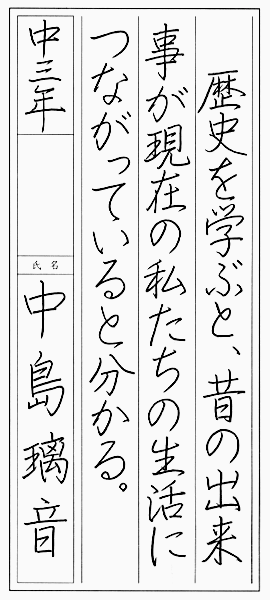 歴史を学ぶと、昔の出来
事が現在の私たちの生活に
つながっていると分かる。
中三年
氏名
中島璃音